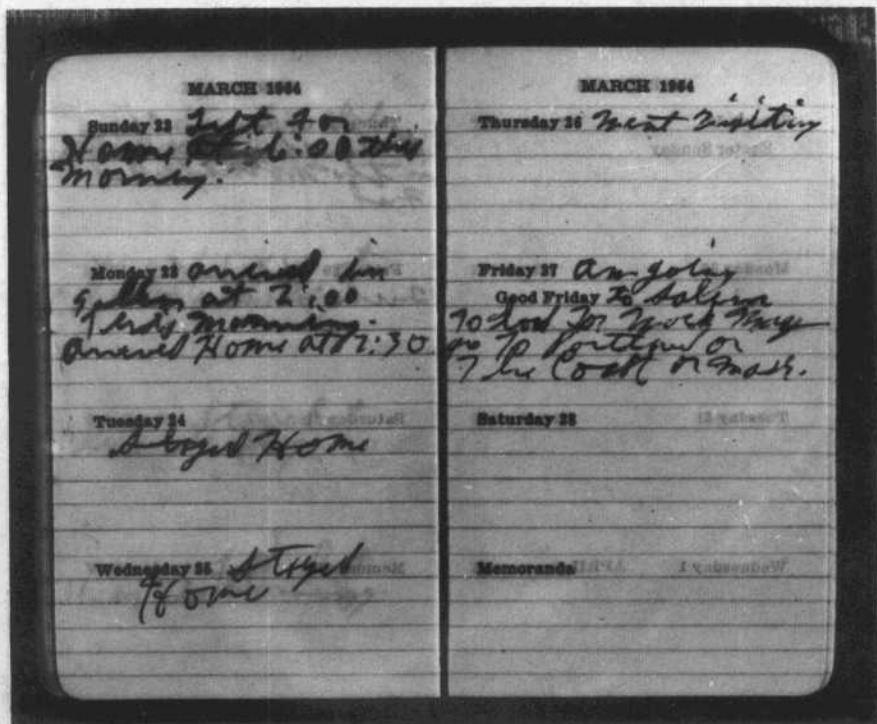 MARCH 1964
Sunday 22 Left for
Home at 6:00 this
Morning.
Monday 23 arrived in
at 7:00
this morning.
arrived Home at 7:30
Tuesday 24
Stayed Home
Wednesday 25 Stayed
Home
MARCH 1964
Thursday 26 Went Visiting
Friday 27 am going
Good Friday to Salem
go to Portland or
The Coast or
Saturday 28
Memoranda